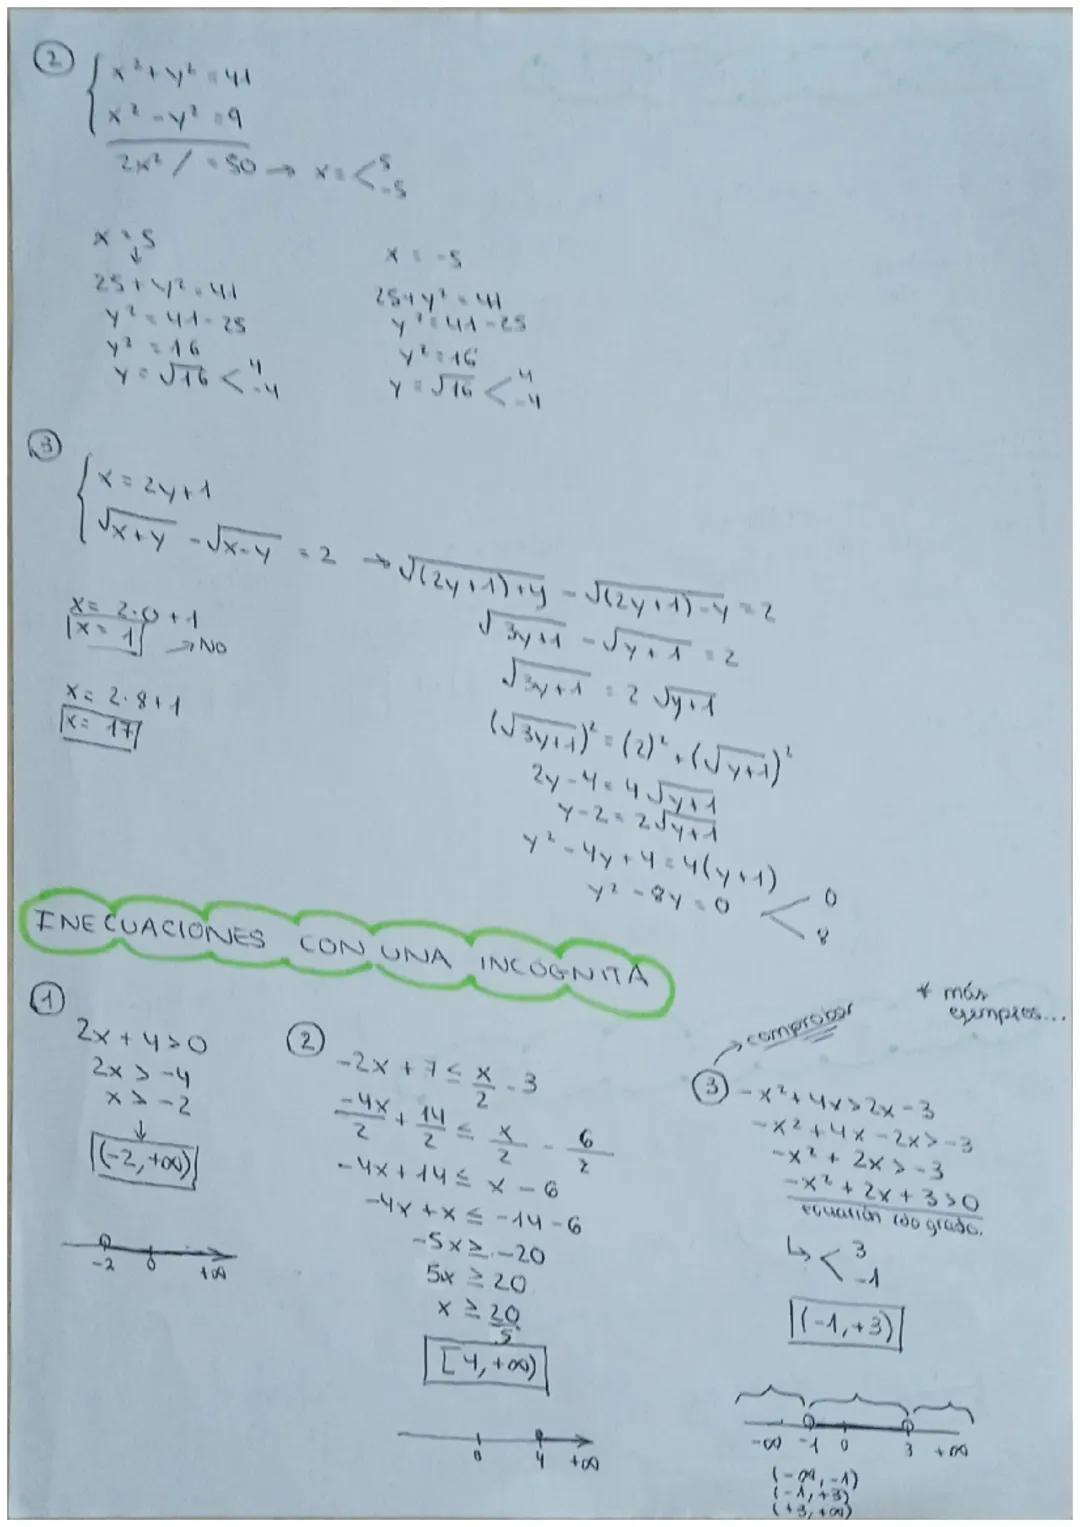 2
x² + y² = 41
x² - y² = 9
2x² / = 50 → x = < 5
-5
x = 5
↓
25 + y² = 41
y² = 41 - 25
y² = 16
y = √16 < 4
-4
x = -5
25 + y² = 41
y² = 41 - 25
y² = 16
y = √16 < 4
-4
3
x = 2y + 1
√x+y - √x-y = 2 → √(2y+1)+y - √(2y+1)-y = 2
√3y+1 - √y+1 = 2
√3y+1 = 2 √y+1
(√3y+1)² = (2)² + (√y+1)²
2y - 4 = 4√y+1
y - 2 = 2√y+1
y² - 4y + 4 = 4(y+1)
y² - 8y = 0 < 0
8
x = 2·0 + 1
x = 1 → NO
x = 2·8+1
x = 17
INECUACIONES CON UNA INCÓGNITA
1
2x + 4 > 0
2x > -4
x > -2
↓
(-2, +∞)
-2 0 +∞
2
-2x + 7 ≤ x/2 - 3
-4x/2 + 14/2 ≤ x/2 - 6/2
-4x + 14 ≤ x - 6
-4x + x ≤ -14 - 6
-5x ≥ -20
5x ≥ 20
x ≥ 20/5
[4, +∞)
0 4 +∞
* más
ejemplos...
→ comprobar
3
-x² + 4x > 2x - 3
-x² + 4x - 2x > -3
-x² + 2x > -3
-x² + 2x + 3 > 0
ecuación 2do grado.
↳ < 3
-1
(-1, +3)
-∞ -1 0 3 +∞
(-∞, -1)
(-1, +3)
(+3, +∞)